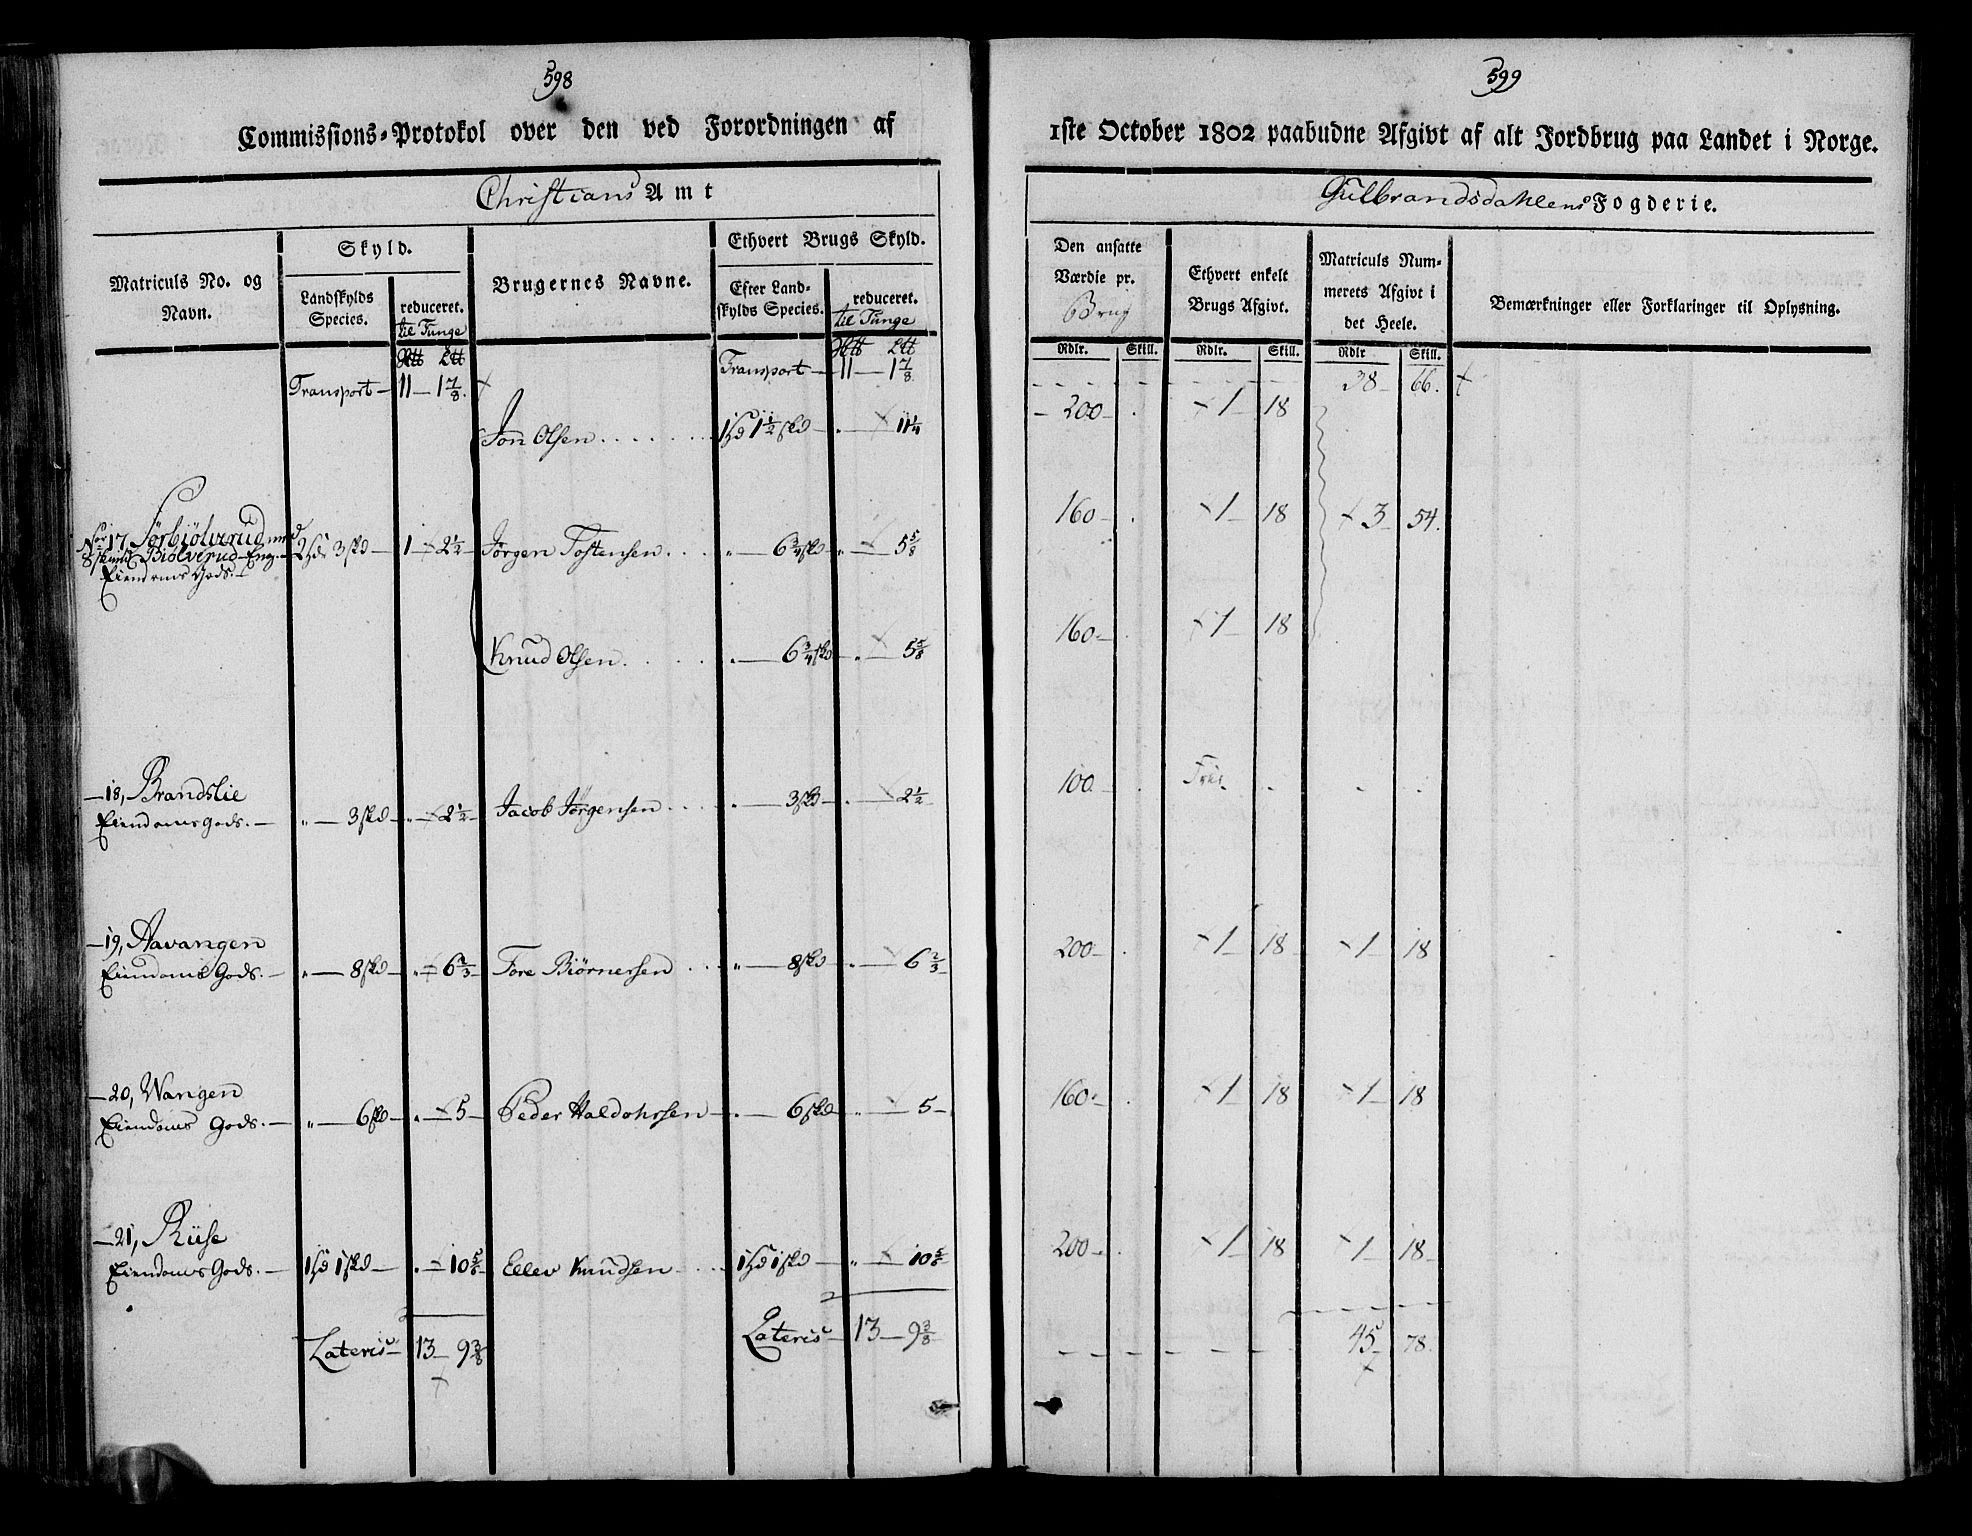 598
Commissions-Protokol over den ved Forordningen af
Christians Amt
Matriculs No. og Navn.
Skyld.
Landskylds Species.
reduceret.
til Tunge
Brugernes Navne.
Ethvert Brugs Skyld.
Efter Landskylds Species.
reduceret.
til Tunge
Transport — 11 — 1 7/8
Transport — 11 — 1 7/8
Jon Olsen 1 1 1/2 skd — 11 1/4
No 17, Sörbiölverud med
Biölverud Eng. 3 skd — 1 — 2 1/2 Jörgen Tostensen " — 6 3/4 skd — " — 5 5/8
Eiendoms Gods.
Knud Olsen — 6 3/4 skd — " — 5 5/8
— 18, Brandslie
Eiendoms Gods. — " — 3 skd — " — 2 1/2 Jacob Jörgensen " — 3 skd — 2 1/2
— 19, Aavangen
Eiendoms Gods. — " — 8 skd — " — 6 2/3 Tore Biörnersen " — 8 skd — 6 2/3
— 20, Wangen
Eiendoms Gods. — " — 6 skd — 5 — Peder Haldohrsen — 6 skd — " — 5 —
— 21, Riise
Eiendoms Gods. — 1 1 skd — 10 5/8 Ellev Knudsen 1 1 skd — " — 10 5/8
Lateris — 13 — 9 3/8
Lateris — 13 — 9 3/8
599
1ste October 1802 paabudne Afgivt af alt Jordbrug paa Landet i Norge.
Gulbrandsdahlens Fogderie.
Den ansatte Værdie pr.
Brug
Ethvert enkelt Brugs Afgivt.
Matriculs Nummerets Afgivt i det Heele.
Bemærkninger eller Forklaringer til Oplysning.
Rdlr. Skill. Rdlr. Skill. Rdlr Skill.
38 — 66.
200 — 1 18
160 — 1 — 18 3 54.
160 — 1 — 18
100 Frie
200 — 1 18 — 1 — 18
160 — 1 — 18 — 1 — 18
200 — 1 — 18 — 1 — 18
45 — 78.